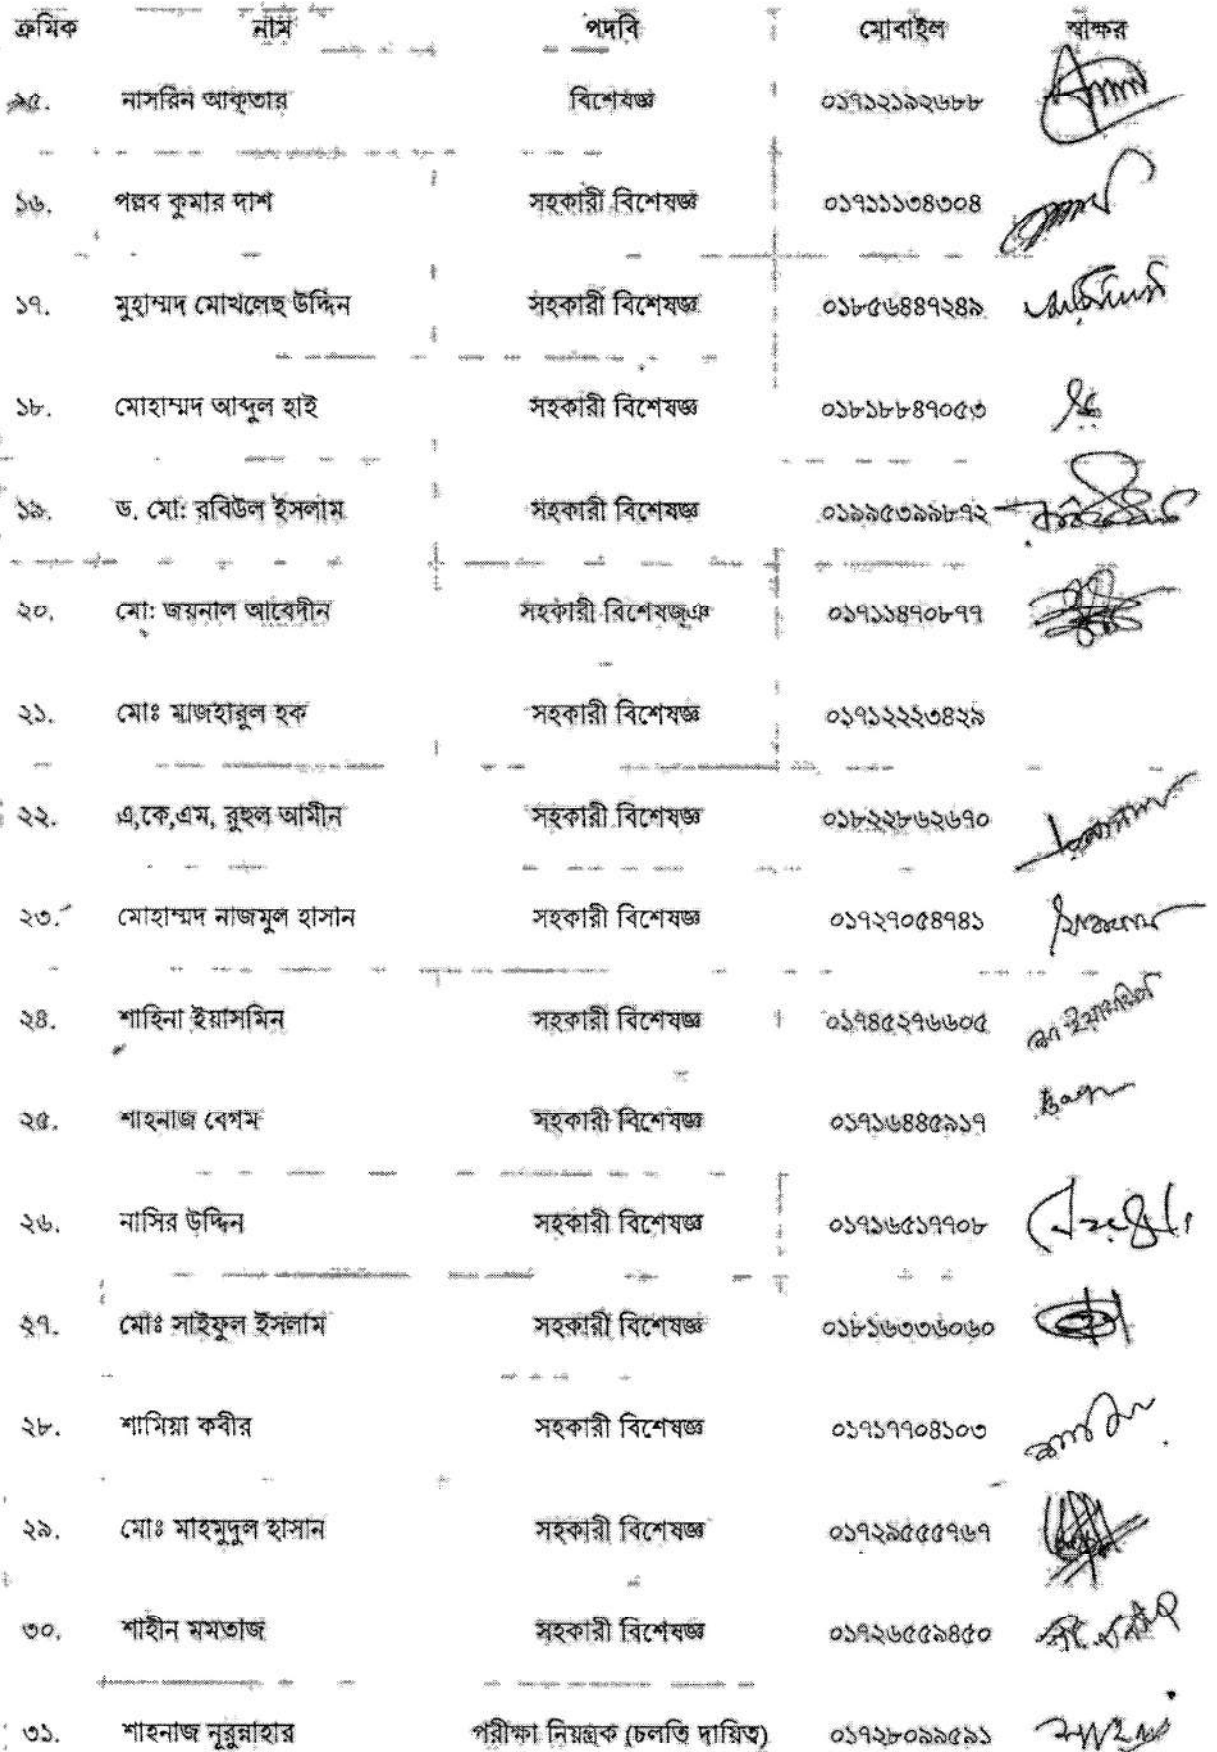 ক্রমিক নাম পদবি মোবাইল স্বাক্ষর
১৫. নাসরিন আক্তার বিশেষজ্ঞ ০১৭১২১৯২৬৮৮
১৬. পল্লব কুমার দাশ সহকারী বিশেষজ্ঞ ০১৭১১১৩৪৩০৪
১৭. মুহাম্মদ মোখলেছ উদ্দিন সহকারী বিশেষজ্ঞ ০১৮৫৬৪৪৭২৪৯
১৮. মোহাম্মদ আব্দুল হাই সহকারী বিশেষজ্ঞ ০১৮১৮৮৪৭০৫৩
১৯. ড. মো: রবিউল ইসলাম সহকারী বিশেষজ্ঞ ০১৯৯৫৩৯৯৮৭২
২০. মো: জয়নাল আবেদীন সহকারী বিশেষজ্ঞ ০১৭১১৪৭০৮৭৭
২১. মোঃ মাজহারুল হক সহকারী বিশেষজ্ঞ ০১৭১২২২৩৪২৯
২২. এ,কে,এম, রুহুল আমীন সহকারী বিশেষজ্ঞ ০১৮২২৮৬২৬৭০
২৩. মোহাম্মদ নাজমুল হাসান সহকারী বিশেষজ্ঞ ০১৭২৭০৫৪৭৪১
২৪. শাহিনা ইয়াসমিন সহকারী বিশেষজ্ঞ ০১৭৪৫২৭৬৬০৫
২৫. শাহনাজ বেগম সহকারী বিশেষজ্ঞ ০১৭১৬৪৪৫৯১৭
২৬. নাসির উদ্দিন সহকারী বিশেষজ্ঞ ০১৭১৬৫১৭৭০৮
২৭. মোঃ সাইফুল ইসলাম সহকারী বিশেষজ্ঞ ০১৮১৬৩৩৬০৬০
২৮. শামিয়া কবীর সহকারী বিশেষজ্ঞ ০১৭১৭৭০৪১০৩
২৯. মোঃ মাহমুদুল হাসান সহকারী বিশেষজ্ঞ ০১৭২৯৫৫৫৭৬৭
৩০. শাহীন মমতাজ সহকারী বিশেষজ্ঞ ০১৭২৬৫৫৯৪৫০
৩১. শাহনাজ নূরুন্নাহার পরীক্ষা নিয়ন্ত্রক (চলতি দায়িত্ব) ০১৭২৮০৯৯৫৯১